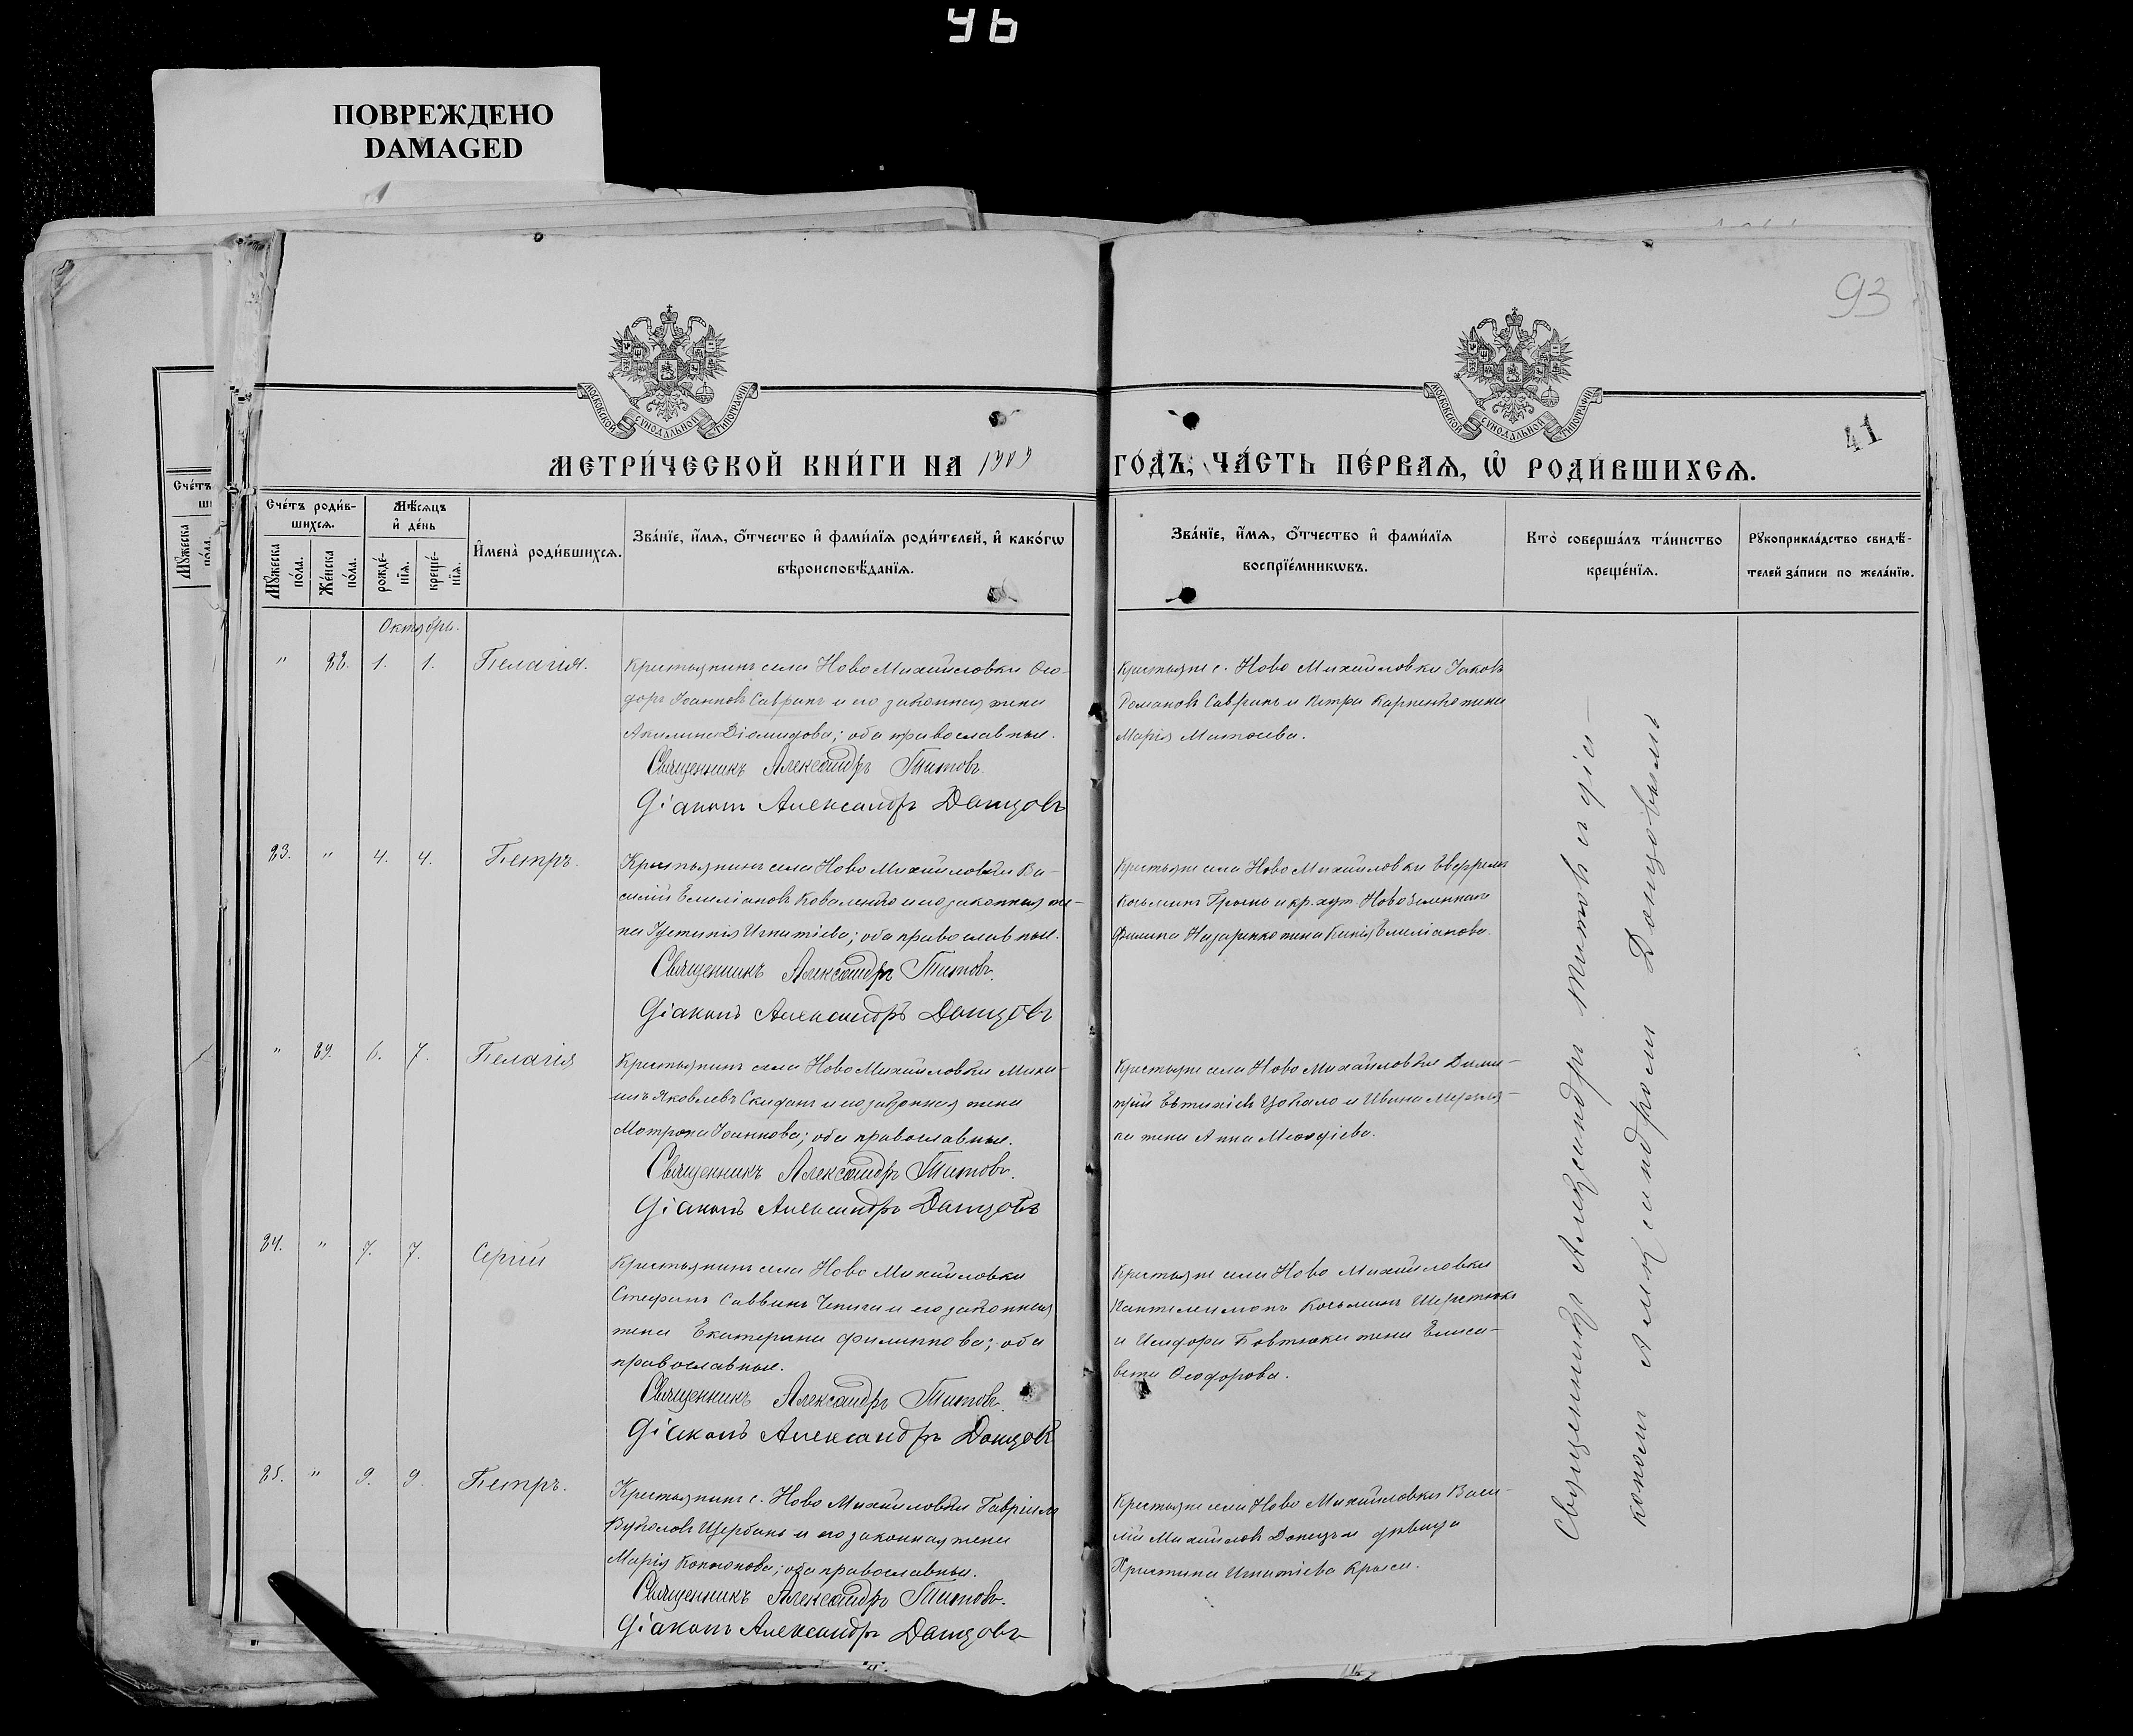 96
ПОВРЕЖДЕНО
DAMAGED
93
41
МОСКОВСКОЙ СѴНОДАЛЬНОЙ ТИПОГРАФІИ
МОСКОВСКОЙ СѴНОДАЛЬНОЙ ТИПОГРАФІИ
МЕТРИ́ЧЕСКОЙ КНИ́ГИ НА 1909 ГО́ДЪ, ЧА́СТЬ ПЕ́РВАѦ, Ѡ҆ РОДИ́ВШИХСѦ.
Сче́тъ роди́в-
шихсѧ.
Мꙋ́жеска по́ла.
Же́нска по́ла.
Мѣ́сѧцъ и҆ де́нь
рожде́-нїѧ.
креще́-нїѧ.
И҆мена̀ роди́вшихсѧ.
Зва́нїе, и҆́мѧ, ѻ҆́тчество и҆ фами́лїѧ роди́телей, и҆ како́гѡ
вѣроисповѣ́данїѧ.
Зва́нїе, и҆́мѧ, ѻ҆́тчество и҆ фами́лїѧ
воспрїе́мникѡвъ.
Кто̀ соверша́лъ та́инство
креще́нїѧ.
Рꙋкоприкла́дство свидѣ́-
телей за́писи по жела́нїю.
Октябрь.
" 22. 1. 1. Пелагія.
Крестьянинъ села Ново Михайловки Ѳео-
доръ Іоанновъ Савранъ и его законная жена
Акилина Діомидова; оба православные.
Священникъ Александръ Титовъ.
Діаконъ Александръ Донцовъ
Крестьяне с. Ново Михайловки Іаковъ
Романовъ Савранъ и Петра Карпенко жена
Марія Матѳеева.
23. " 4. 4. Петръ.
Крестьянинъ села Ново Михайловки Ва-
силій Емиліановъ Коваленко и его законная же-
на Іустинія Игнатіева; оба православные.
Священникъ Александръ Титовъ.
Діаконъ Александръ Донцовъ
Крестьяне села Ново Михайловки
Косьминъ и кр. хут.
Филипа Назаренко жена Емиліанова.
" 23. 6. 7. Пелагія
Крестьянинъ села Ново Михайловки Миха-
илъ Яковлевъ Скиданъ и его законная жена
Матрона Іоаннова; оба православные.
Священникъ Александръ Титовъ.
Діаконъ Александръ Донцовъ
Крестьяне села Ново Михайловки Дими-
трій Евтихіевъ Цокало и Ивана
жена Анна Меѳодіева.
24. " 7. 7. Сергій
Крестьянинъ села Ново Михайловки
Стефанъ Саввинъ Чепига и его законная
жена Екатерина Филиппова; оба
православные.
Священникъ Александръ Титовъ.
Діаконъ Александръ Донцовъ
Крестьяне села Ново Михайловки
Пантелеимонъ Косьминъ Шереметъ
и Исидора Бовтюка жена Елиса-
вета Ѳеодорова.
25. " 9. 9. Петръ.
Крестьянинъ с. Ново Михайловки Гавріилъ
Вуколовъ Щербань и его законная жена
Марія Кононова; оба православные.
Священникъ Александръ Титовъ.
Діаконъ Александръ Донцовъ
Крестьяне села Ново Михайловки Васи-
лій Михайловъ Донецъ и дѣвица
Христина Игнатіева
Священникъ Александръ Титовъ и діа-
кономъ Александромъ Донцовымъ
Сче́тъ
ши
Мꙋ́жеска по́ла.